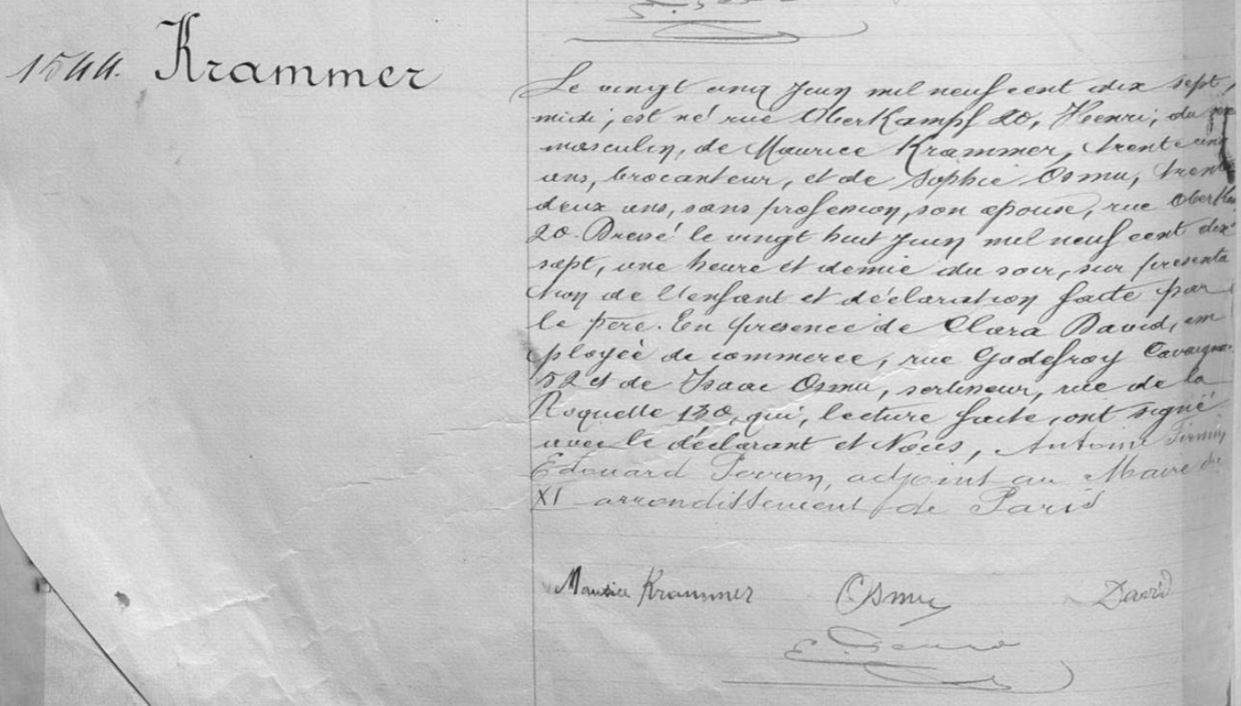 1544. Krammer
Le vingt cinq Juin mil neuf cent dix sept,
midi, est né rue Oberkampf 20, Henri, du sexe
masculin, de Maurice Krammer, trente cinq
ans, brocanteur, et de Sophie Osmu, trente
deux ans, sans profession, son épouse, rue Oberkam
20. Dressé le vingt huit Juin mil neuf cent dix
sept, une heure et demie du soir, sur présenta
tion de l'enfant et déclaration faite par
le père. En présence de Clara David, em
ployée de commerce, rue Godefroy Cavaignac
52 et de Isaac Osmu, sertisseur, rue de la
Roquette 130, qui, lecture faite, ont signé
avec le déclarant et Nous, Antoine Firmin
Edouard Perron, adjoint au Maire du
XI arrondissement de Paris
Maurice Krammer Osmu David